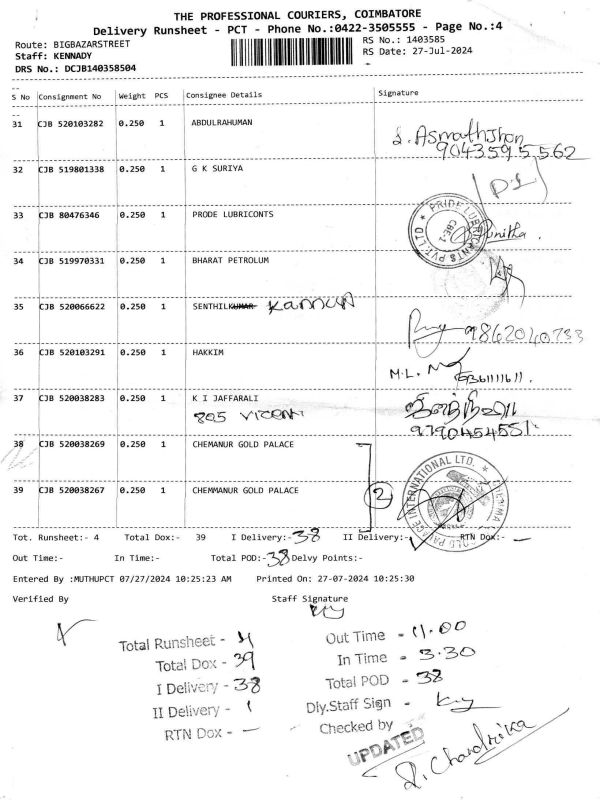 THE PROFESSIONAL COURIERS, COIMBATORE
Delivery Runsheet - PCT - Phone No.:0422-3505555 - Page No.:4
Route: BIGBAZARSTREET
RS No.: 1403585
Staff: KENNADY
RS Date: 27-Jul-2024
DRS No.: DCJB140358504
S No Consignment No Weight PCS Consignee Details Signature
31 CJB 520103282 0.250 1 ABDULRAHUMAN
S. Asmathjhon
9043595562
32 CJB 519801338 0.250 1 G K SURIYA
33 CJB 80476346 0.250 1 PRODE LUBRICONTS
PRIDE LUBRICANTS PVT. LTD
CBE-1
34 CJB 519970331 0.250 1 BHARAT PETROLUM
35 CJB 520066622 0.250 1 SENTHILKUMAR Kannan
9862040733
36 CJB 520103291 0.250 1 HAKKIM
M.L.
9361111611.
37 CJB 520038283 0.250 1 K I JAFFARALI
9790454551
38 CJB 520038269 0.250 1 CHEMANUR GOLD PALACE
39 CJB 520038267 0.250 1 CHEMMANUR GOLD PALACE
2
GOLD PALACE INTERNATIONAL LTD.
Tot. Runsheet:- 4 Total Dox:- 39 I Delivery:- 38 II Delivery:- 1 RTN Dox:- -
Out Time:- In Time:- Total POD:- 38 Delvy Points:-
Entered By :MUTHUPCT 07/27/2024 10:25:23 AM Printed On: 27-07-2024 10:25:30
Verified By Staff Signature
Total Runsheet - 4
Total Dox - 39
I Delivery - 38
II Delivery - 1
RTN Dox - -
Out Time - 11.00
In Time - 3.30
Total POD - 38
Dly.Staff Sign -
Checked by
UPDATED
R. Chandrika